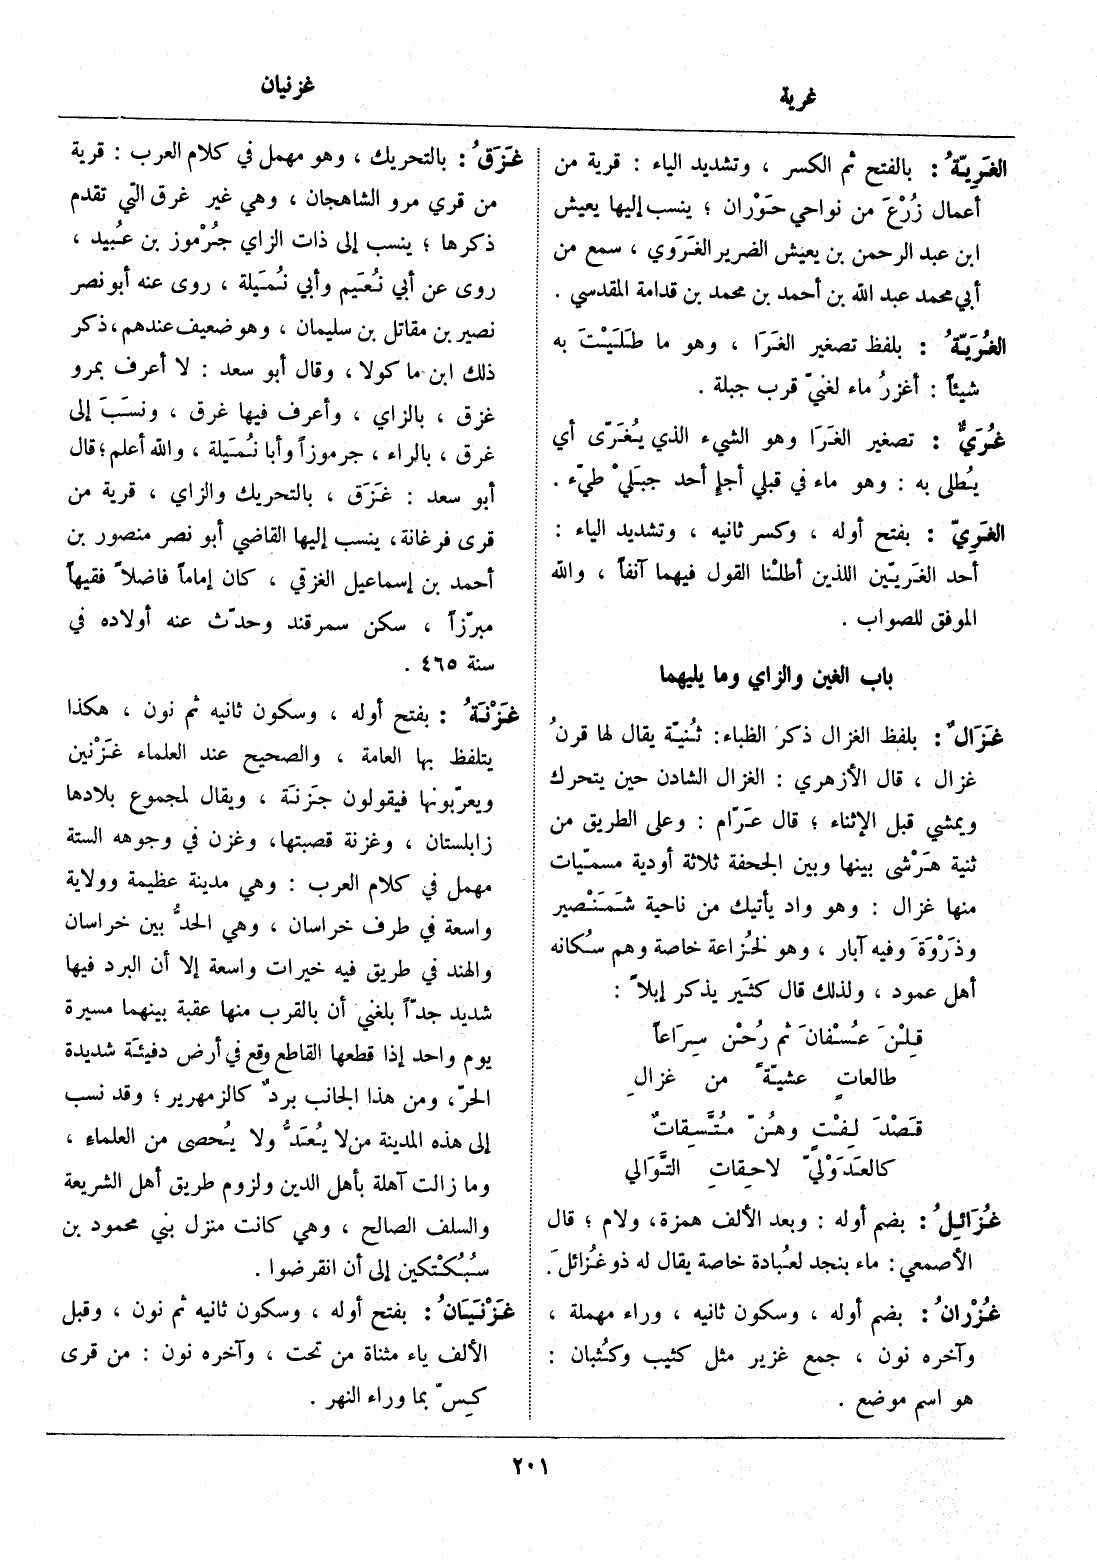 غرية
غزنيان
الغَرِيّةُ : بالفتح ثم الكسر ، وتشديد الياء : قرية من
أعمال زُرْعَ من نواحي حَوْران ؛ ينسب إليها يعيش
ابن عبد الرحمن بن يعيش الضرير الغَرَوي ، سمع من
أبي محمد عبد الله بن أحمد بن محمد بن قدامة المقدسي .
الغُرَيّةُ : بلفظ تصغير الغَرَا ، وهو ما طَلَيْتَ به
شيئاً : أغزرُ ماء لغنيّ قرب جبلة .
غُرَيٌّ : تصغير الغَرَا وهو الشيء الذي يُغَرّى أي
يُطلى به : وهو ماء في قبلي أجإ أحد جبَلَيْ طيّء .
الغَرِيّ : بفتح أوله ، وكسر ثانيه ، وتشديد الياء :
أحد الغَرِيّين اللذين أطلْنا القول فيهما آنفاً ، والله
الموفق للصواب .
باب الغين والزاي وما يليهما
غَزَالٌ : بلفظ الغزال ذكرَ الظباء : ثُنيّة يقال لها قرنُ
غزال ، قال الأزهري : الغزال الشادن حين يتحرك
ويمشي قبل الإثناء ؛ قال عَرّام : وعلى الطريق من
ثنية هَرْشى بينها وبين الجحفة ثلاثة أودية مسمّيات
منها غزال : وهو واد يأتيك من ناحية شَمَنْصير
وذَرْوَةَ وفيه آبار ، وهو لخُزاعة خاصة وهم سُكانه
أهل عمود ، ولذلك قال كثَير يذكر إبلاً :
قِلْنَ عُسْفانَ ثم رُحْن سِرَاعاً
طالعاتٍ عشيّةً من غزالِ
قَصْدَ لِفْتٍ وهُنّ مُتَّسِقاتٌ
كالعَدَوْليّ لاحِقاتِ التَّوَالي
غُزَائِلُ : بضم أوله : وبعد الألف همزة ، ولام ؛ قال
الأصمعي : ماء بنجد لعُبادة خاصة يقال له ذو غُزائلَ .
غُزْرانُ : بضم أوله ، وسكون ثانيه ، وراء مهملة ،
وآخره نون ، جمع غزير مثل كثيب وكُثبان :
هو اسم موضع .
غَزَقُ : بالتحريك ، وهو مهمل في كلام العرب : قرية
من قري مرو الشاهجان ، وهي غير غرق التي تقدم
ذكرها ؛ ينسب إلى ذات الزاي جُرْموز بن عُبيد ،
روى عن أبي نُعَيم وأبي نُمَيلة ، روى عنه أبو نصر
نصير بن مقاتل بن سليمان ، وهو ضعيف عندهم، ذكر
ذلك ابن ماكولا ، وقال أبو سعد : لا أعرف بمرو
غزق ، بالزاي ، وأعرف فيها غرق ، ونسَبَ إلى
غرق ، بالراء ، جرموزاً وأبا نُمَيلة ، والله أعلم ؛ قال
أبو سعد : غَزَق ، بالتحريك والزاي ، قرية من
قرى فرغانة، ينسب إليها القاضي أبو نصر منصور بن
أحمد بن إسماعيل الغزقي ، كان إماماً فاضلاً فقيهاً
مبرّزاً ، سكن سمرقند وحدّث عنه أولاده في
سنة ٤٦٥ .
غَزْنَةُ : بفتح أوله ، وسكون ثانيه ثم نون ، هكذا
يتلفظ بها العامة ، والصحيح عند العلماء غَزْنين
ويعرّبونها فيقولون جَزنَة ، ويقال لمجموع بلادها
زابلستان ، وغزنة قصبتها، وغزن في وجوهه الستة
مهمل في كلام العرب : وهي مدينة عظيمة وولاية
واسعة في طرف خراسان ، وهي الحدُّ بين خراسان
والهند في طريق فيه خيرات واسعة إلا أن البرد فيها
شديد جدّاً بلغني أن بالقرب منها عقبة بينهما مسيرة
يوم واحد إذا قطعها القاطع وقع في أرض دفيئَة شديدة
الحرّ، ومن هذا الجانب بردٌ كالزمهرير ؛ وقد نسب
إلى هذه المدينة من لا يُعَدُّ ولا يُحصى من العلماء ،
وما زالت آهلة بأهل الدين ولزوم طريق أهل الشريعة
والسلف الصالح ، وهي كانت منزل بني محمود بن
سُبُكْتكين إلى أن انقرضوا .
غَزْنَيَانُ : بفتح أوله ، وسكون ثانيه ثم نون ، وقبل
الألف ياء مثناة من تحت ، وآخره نون : من قرى
كِسّ بما وراء النهر .
٢٠١